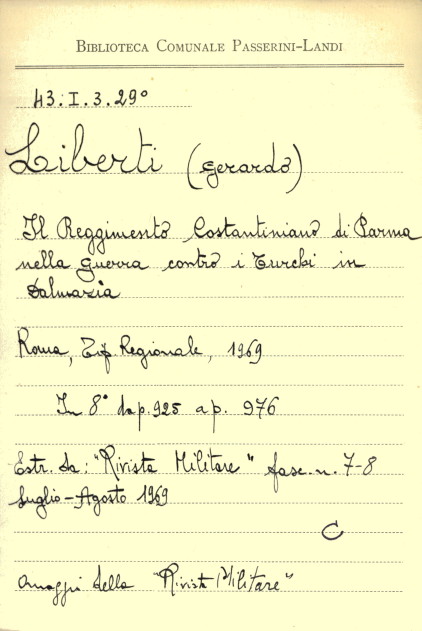 BIBLIOTECA COMUNALE PASSERINI-LANDI
43.I.3.29°
Liberti (Gerardo)
Il Reggimento Costantiniano di Parma
nella guerra contro i Turchi in
Dalmazia
Roma, Tip. Regionale, 1969
In 8° da p. 925 a p. 976
Estr. da: "Rivista Militare" fasc. n. 7-8
Luglio-Agosto 1969
C
Omaggio della "Rivista Militare"